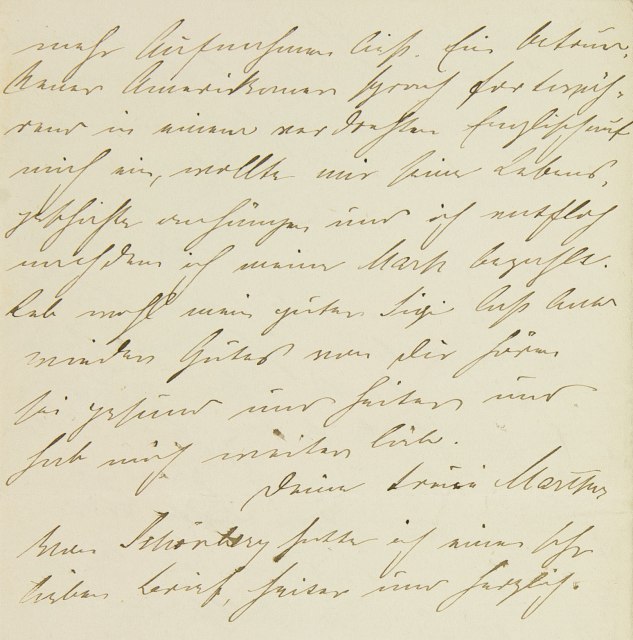 mehr Aufnahmen ließ. Ein betrun-
kener Amerikaner sprach fortwäh-
rend in einem verdrehten Englisch auf
mich ein, wollte mir seine Lebens-
geschichte anhängen und ich entfloh
nachdem ich meine Mark bezahlt.
Leb wohl mein guter Sigi laß bald
wieder Gutes von Dir hören
sei gesund und heiter und
hab mich weiter lieb.
Deine treue Martha
Von Schönberg hatte ich einen sehr
lieben Brief, heiter und herzlich.